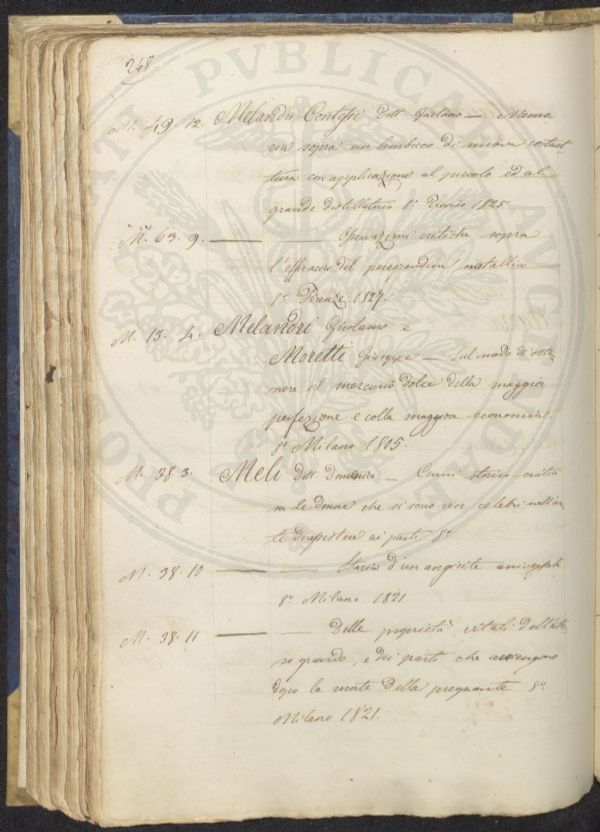 248
M. 49. 12. Melandri Contessi Dott. Gaetano — Memo
ria sopra un lambicco di nuova costrut
tura con applicazione al piccolo ed al
grande distillatorio 8.º 1825
M. 63. 9. — — Osservazioni critiche sopra
l'efficacia del metallico
8.º Firenze 1827.
M. 15. 4. Melandri Girolamo e
Moretti Giuseppe — Sul modo di otte
nere il mercurio dolce della maggior
perfezione e colla maggior economia
8.º Milano 1805.
M. 38. 3. Meli Dott. Domenico — Cenni storico-critici
su le donne che si sono rese celebri nell'ar
te d'assistere ai parti 8.º
M. 38. 10 — — Storia d'un angioite universale
8.º Milano 1821
M. 38. 11 — — Delle proprietà vitali dell'ute
ro gravido, e dei parti che avvengono
dopo la morte della pregnante 8.º
Milano 1821.
PVBLICAE